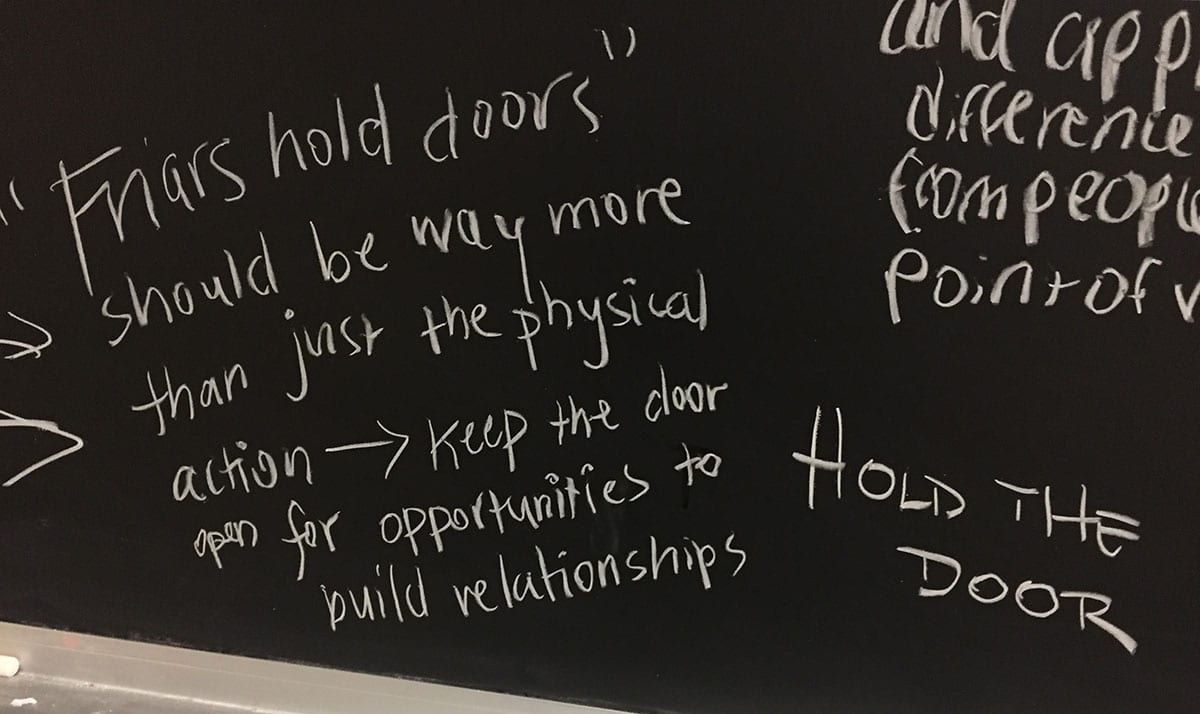 "Friars hold doors"
should be way more
than just the physical
action → keep the door
open for opportunities to
build relationships
and app
difference
from people
point of v
HOLD THE
DOOR